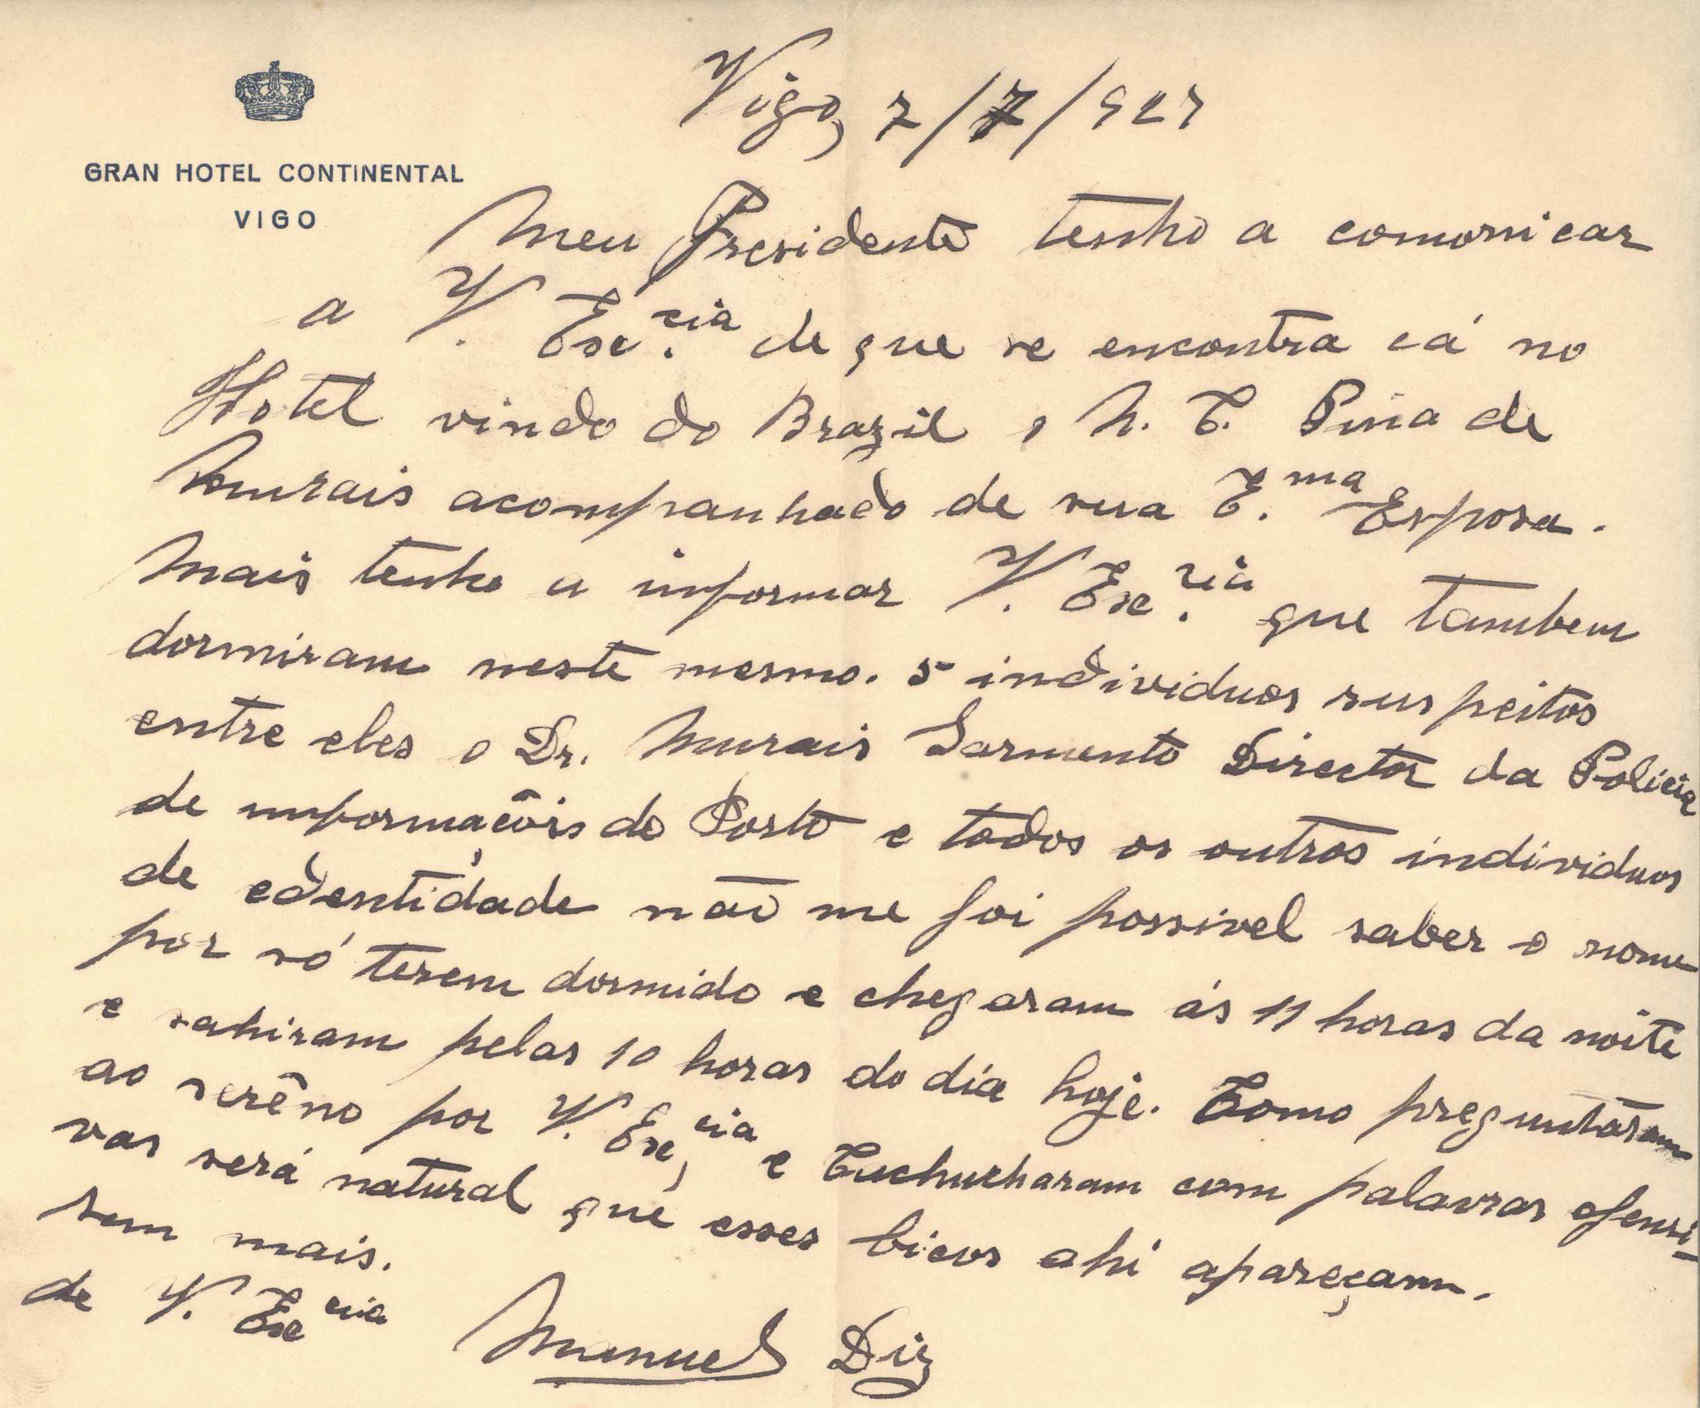 GRAN HOTEL CONTINENTAL
VIGO
Vigo, 7/7/927
Meu Presidente tenho a comonicar
a V. Exc.cia de que se encontra cá no
Hotel vindo do Brazil o N. C. Pina de
Murais acompanhado de sua E.ma Esposa.
Mais tenho a informar V. Exc.cia que tambem
dormiram neste mesmo. 5 individuos suspeitos
entre eles o Dr. Murais Sarmento Director da Policia
de informaçõis do Porto e todos os outros individuos
de edentidade não me foi possivel saber o nome
por só terem dormido e chegaram ás 11 horas da noite
e sahiram pelas 10 horas do dia hoje. Como preguntáram
ao serêno por V. Exc,cia e Cuchucharam com palavras ofensi-
vas será natural que esses bicos ahi apareçam.
Sem mais.
de V. Exccia Manuel Diz